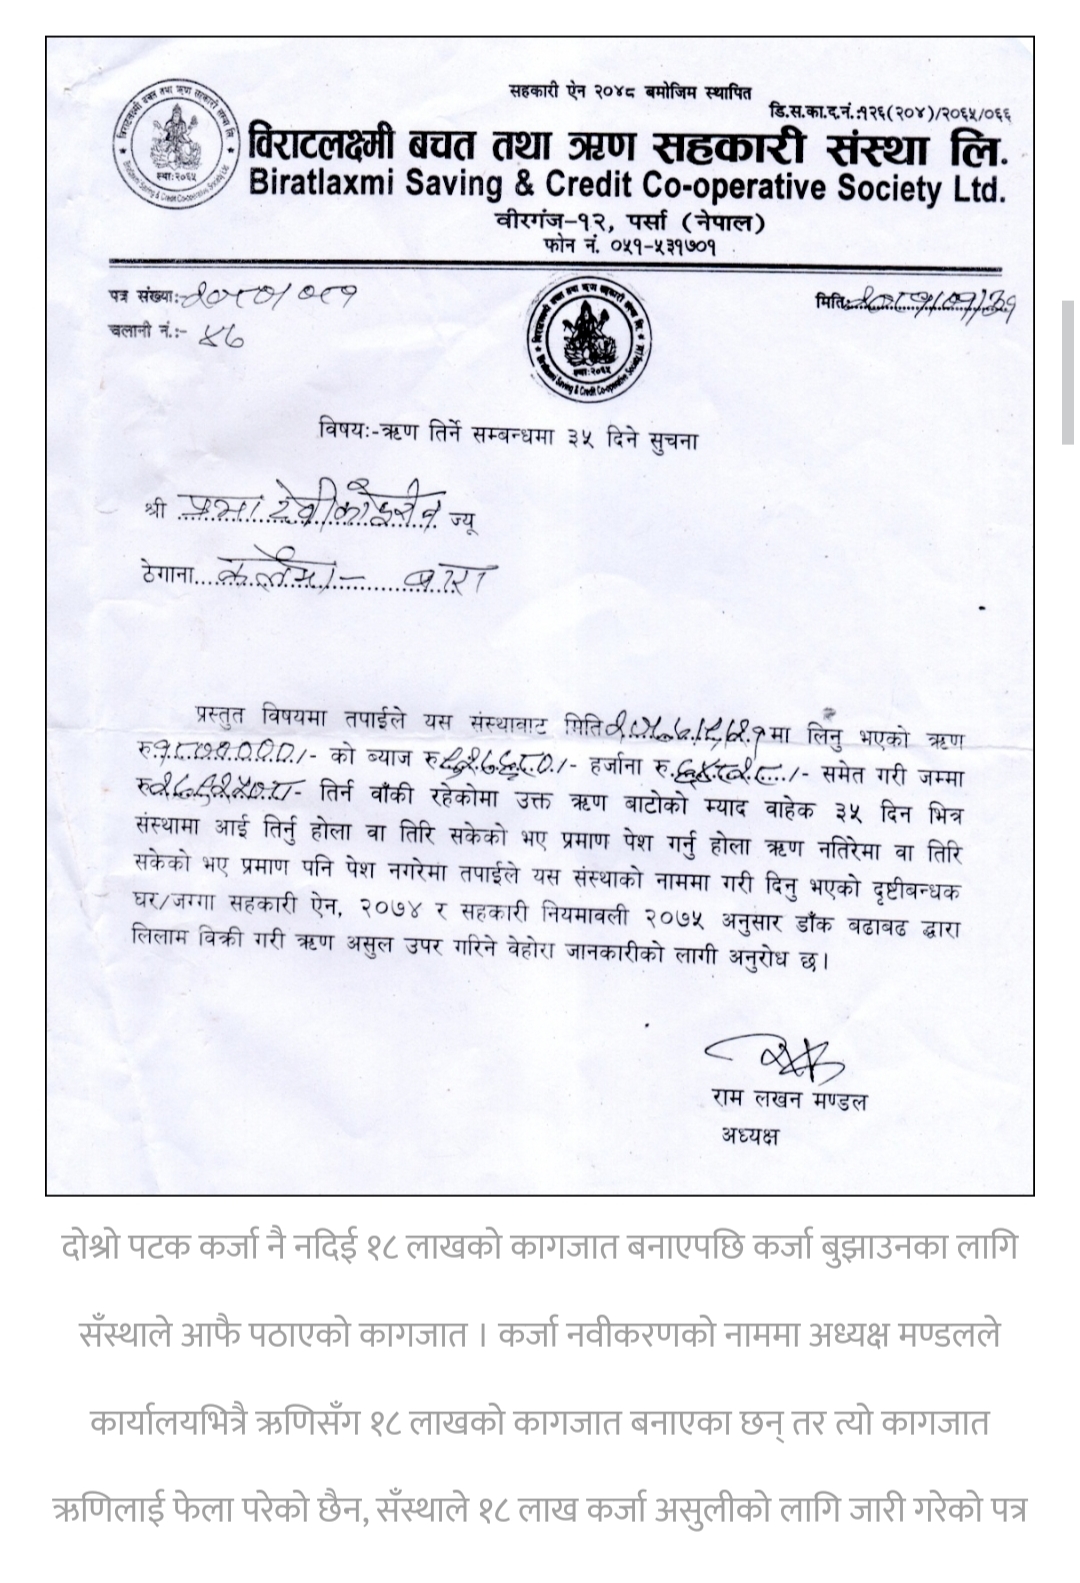 सहकारी ऐन २०४८ बमोजिम स्थापित
डि.स.का.द.नं.:१२६(२०४)/२०६५/०६६
विराटलक्ष्मी बचत तथा ऋण सहकारी संस्था लि.
Biratlaxmi Saving & Credit Co-operative Society Ltd.
वीरगंज-१२, पर्सा (नेपाल)
फोन नं. ०५१-५३१७०१
पत्र संख्याः-२०८०/०८१
मितिः
चलानी नं.:- ४६
विषयः-ऋण तिर्ने सम्बन्धमा ३५ दिने सुचना
श्री प्रभा देवी कोइरीन ज्यू
ठेगाना कलैया- बारा
प्रस्तुत विषयमा तपाईले यस संस्थावाट मिति मा लिनु भएको ऋण
रु को ब्याज रु हर्जाना रु. समेत गरी जम्मा
रु तिर्न वाँकी रहेकोमा उक्त ऋण बाटोको म्याद वाहेक ३५ दिन भित्र
संस्थामा आई तिर्नु होला वा तिरि सकेको भए प्रमाण पेश गर्नु होला ऋण नतिरेमा वा तिरि
सकेको भए प्रमाण पनि पेश नगरेमा तपाईले यस संस्थाको नाममा गरी दिनु भएको दृष्टीबन्धक
घर/जग्गा सहकारी ऐन, २०७४ र सहकारी नियमावली २०७५ अनुसार डाँक बढाबढ द्वारा
लिलाम विक्री गरी ऋण असुल उपर गरिने वेहोरा जानकारीको लागी अनुरोध छ।
राम लखन मण्डल
अध्यक्ष
दोश्रो पटक कर्जा नै नदिई १८ लाखको कागजात बनाएपछि कर्जा बुझाउनका लागि
सँस्थाले आफै पठाएको कागजात । कर्जा नवीकरणको नाममा अध्यक्ष मण्डलले
कार्यालयभित्रै ऋणिसँग १८ लाखको कागजात बनाएका छन् तर त्यो कागजात
ऋणिलाई फेला परेको छैन, सँस्थाले १८ लाख कर्जा असुलीको लागि जारी गरेको पत्र